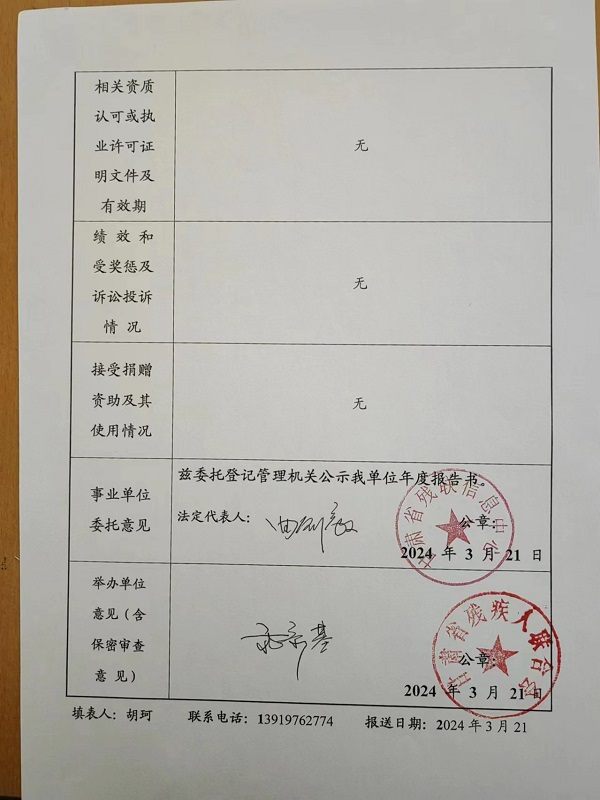 相关资质
认可或执
业许可证
明文件及
有效期
无
绩 效 和
受奖惩及
诉讼投诉
情 况
无
接受捐赠
资助及其
使用情况
无
事业单位
委托意见
兹委托登记管理机关公示我单位年度报告书。
法定代表人：
公章：
2024 年 3 月 21 日
甘肃省残联信息中心
举办单位
意见（含
保密审查
意 见）
公章：
2024 年 3 月 21 日
甘肃省残疾人联合会
填表人：胡珂 联系电话：13919762774 报送日期：2024 年 3 月 21